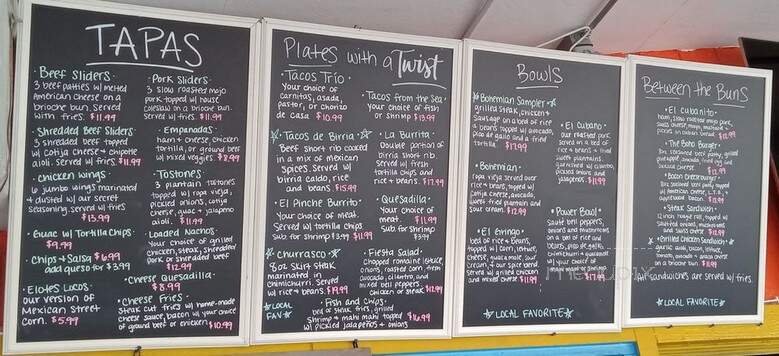 TAPAS
· Beef Sliders ·
3 beef patties w/ melted
American cheese on a
brioche bun. Served
with fries. $11.99
· Shredded Beef Sliders ·
3 shredded beef topped
w/ cotija cheese + chipotle
aioli. Served w/ fries. $11.99
· Chicken Wings ·
6 jumbo wings marinated
+ dusted w/ our secret
seasoning. Served w/ fries
$13.99
· Guac w/ Tortilla Chips ·
$9.99
· Chips + Salsa $6.99
add queso for $3.99
· Elotes Locos ·
our version of
Mexican Street
Corn. $5.99
· Pork Sliders ·
3 slow roasted mojo
pork topped w/ house
coleslaw on a brioche bun.
Served w/ fries. $11.99
· Empanadas ·
ham + cheese, chicken
tortilla, or ground beef
w/ mixed veggies $8.99
· Tostones ·
3 plantain tostones
topped w/ ropa vieja,
pickled onions, cotija
cheese, guac + jalapeño
aioli. $11.99
· Loaded Nachos ·
Your choice of grilled
chicken, steak, shredded
pork or shredded beef
$12.99
· Cheese Quesadilla ·
$8.99
· Cheese Fries ·
Steak cut fries w/ home-made
cheese sauce, bacon w/ your choice
of ground beef or chicken $10.99
Plates with a Twist
· Tacos Trío ·
Your choice of
carnitas, asada,
pastor, or chorizo
de casa $10.99
· Tacos de Birria ·
Beef short rib cooked
in a mix of Mexican
spices. Served w/
birria caldo, rice
and beans. $15.99
· El Pinche Burrito ·
Your choice of meat.
Served w/ tortilla chips
Sub. for shrimp $3.99 $11.99
Churrasco ·
8oz skirt steak
marinated in
chimichurri. Served
w/ rice + beans. $19.99
· Tacos from the Sea ·
your choice of fish
or shrimp $13.99
· La Burrita ·
Double portion of
birria short rib
served w/ fresh
tortilla chips and
rice + beans. $17.99
· Quesadilla ·
Your choice of
meat. $11.99
Sub. for Shrimp
$3.99
· Fiesta Salad ·
Chopped romaine lettuce,
onions, roasted corn, fresh
avocado, cilantro, and
mixed bell peppers.
chicken or steak $12.99
· Fish and Chips ·
bed of steak fries, grilled
shrimp + mahi mahi topped
w/ pickled jalapeños + onions $16.99
LOCAL
FAV
Bowls
· Bohemian Sampler ·
grilled steak, chicken +
sausage on a bed of rice
+ beans topped w/ avocado,
pico de gallo and a fried
tortilla. $17.99
· Bohemian ·
ropa vieja served over
rice + beans, topped w/
cotija cheese, avocado,
sweet fried plantain and
sour cream. $12.99
· El Gringo ·
bed of rice + beans,
topped w/ corn, lettuce,
cheese, guacamole, sour
cream, + our spice blend.
served w/ grilled chicken
and mixed cheese $11.99
· El Cubano ·
our roasted pork
served on a bed of
rice + beans + fried
sweet plantains.
garnished w/ cilantro,
pickled onions and
jalapeños. $11.99
· Power Bowl ·
Sauté bell peppers,
onions and mushrooms
on a bed of rice and
beans, pico de gallo,
chimichurri + guacamole
w/ your choice of
steak, mahi or shrimp
$17.99
LOCAL FAVORITE
Between the Buns
· El Cubanito ·
ham, slow roasted mojo pork,
swiss cheese, mayo, mustard +
pickles on cuban bread $12.99
· The Boho Burger ·
8oz seasoned beef patty, grilled
pineapple, avocado, fried egg and
cheese $12.99
· Bacon Cheeseburger ·
8oz seasoned beef patty, topped
w/ American cheese, L.T.O. +
applewood bacon. $12.99
· Steak Sandwich ·
12 inch hoagie roll, topped w/
sautéed onions, mushrooms
and swiss cheese $12.99
· Grilled Chicken Sandwich ·
garlic aioli, bacon, lettuce,
tomato, avocado + asiago cheese
on a brioche bun. $11.99
All sandwiches are served w/ fries.
LOCAL FAVORITE
menupix